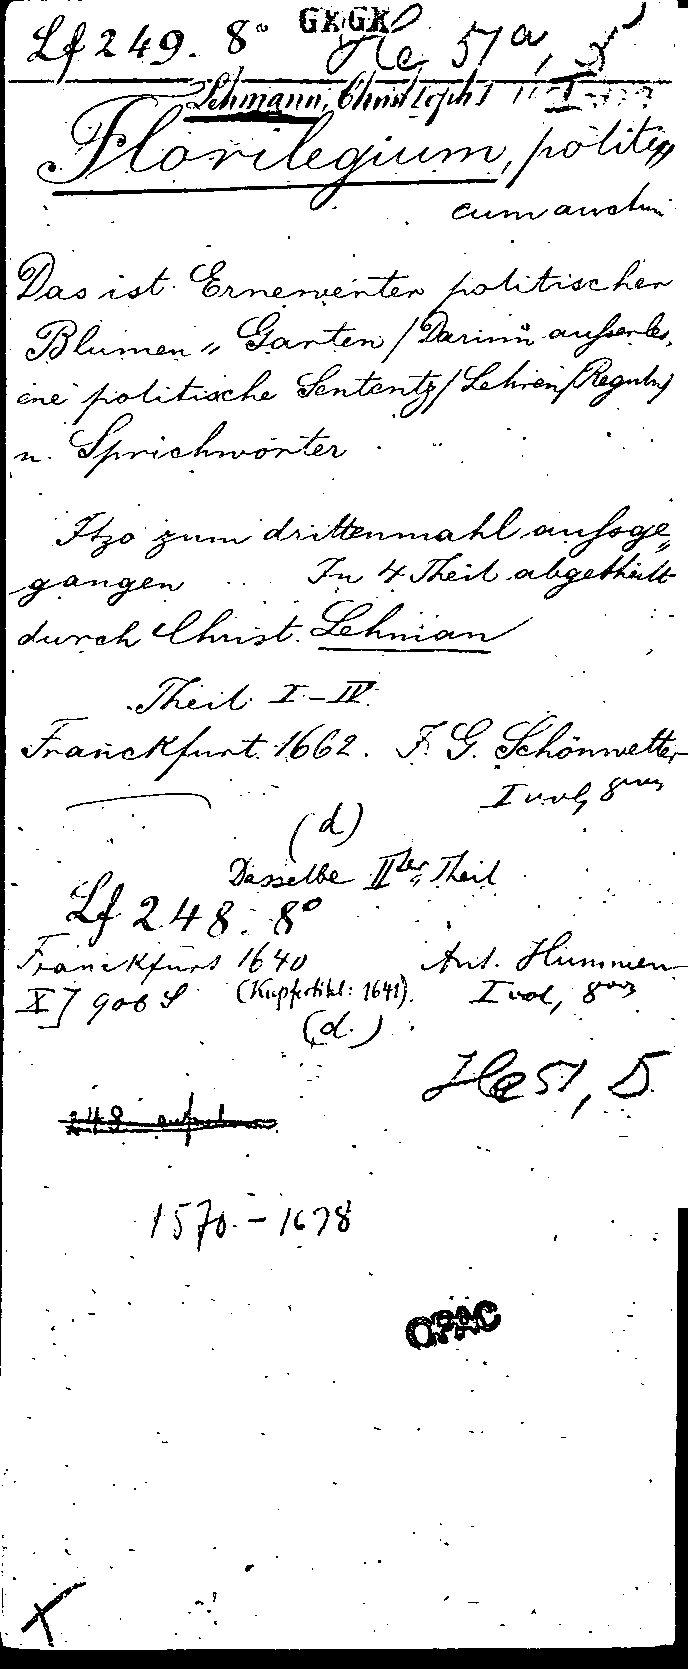 GXGX
Lf 249. 8° He 51a, 5
Lehmann, Christoph
Florilegium, politi„
cum auctum
Das ist Ernewerter politischer
Blumen„ Garten / Darinn ausserles„
ene politische Sententz / Lehren / Reguln /
u. Sprichwörter
Itzo zum drittenmahl aussge„
gangen ... In 4 Theil abgetheilt
durch Christ. Lehman
Theil I-IV.
Franckfurt. 1662. J. G. Schönwetter
I vol, 8vo
(d)
Dasselbe IIter Theil
Lf 248. 8°
Franckfurt 1640 Ant. Hummen
X] 906 S (Kupfertitel: 1641). I vol, 8vo
(d.)
He 51, 5
248
1570 - 1638
OPAC